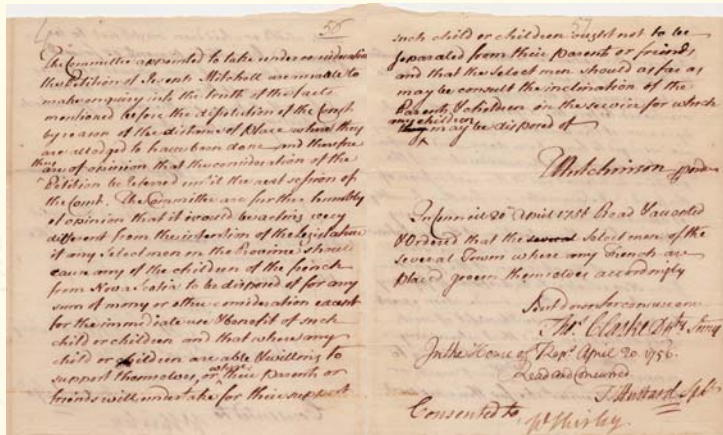 56
The Committee appointed to take under consideration
the Petition of Mitchell are unable to
make enquiry into the truth of the facts
mentioned before the dissolution of the Court
by reason of the distance of place where they
are alledged to have been done and therefore
they are of opinion that the consideration of the
Petition be referred until the next session of
the Court. The Committee are further humbly
of opinion that it would be acting very
different from the intention of the Legislature
if any Select men in the Province should
cause any of the children of the french
from Nova Scotia to be disposed of for any
sum of mony or other consideration except
for the immediate use & benefit of such
child or children and that where any
child or children are able & willing to
support themselves, or their parents or
friends will undertake for their support
57
such child or children ought not to be
separated from their parents or friends
and that the Select men should as far as
may be consult the inclination of the
Parents & children in the service for which
any children
they may be disposed of
Hutchinson
In Council 20 April 1756 Read & accepted
& Ordered that the several Select men of the
several Towns where any French are
placed govern themselves accordingly
Sent down for concurrence
Thos. Clarke Dpty Secry
In the House of Repves April 20. 1756.
Read and Concurred
T Hubbard Spkr
Consented to
W Shirley